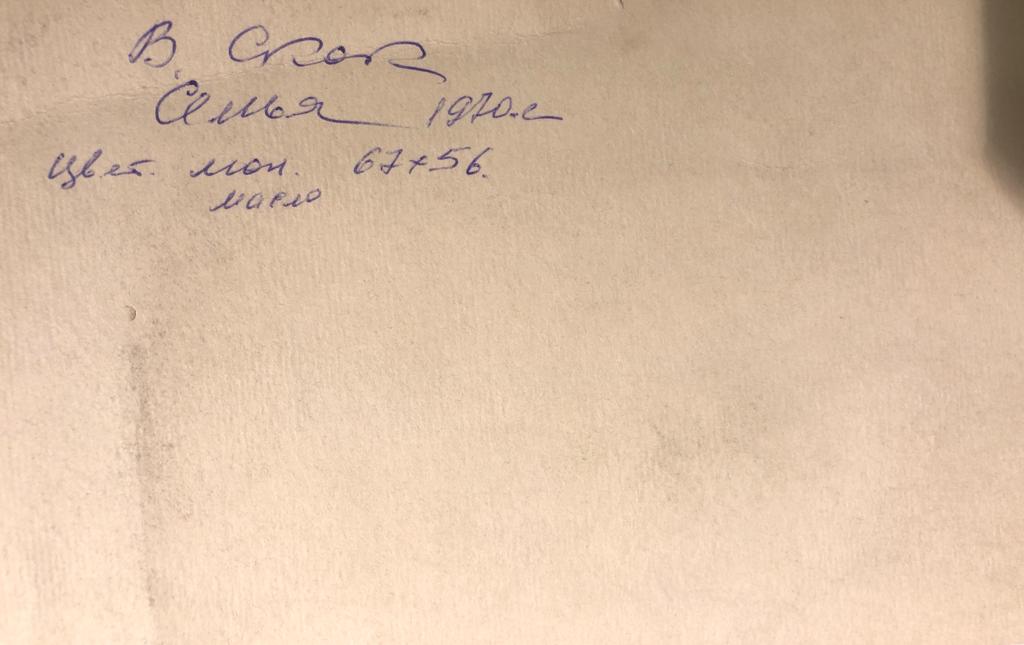 В. Скок
Семья 1970.г
Цвет. мон. 67х56.
масло